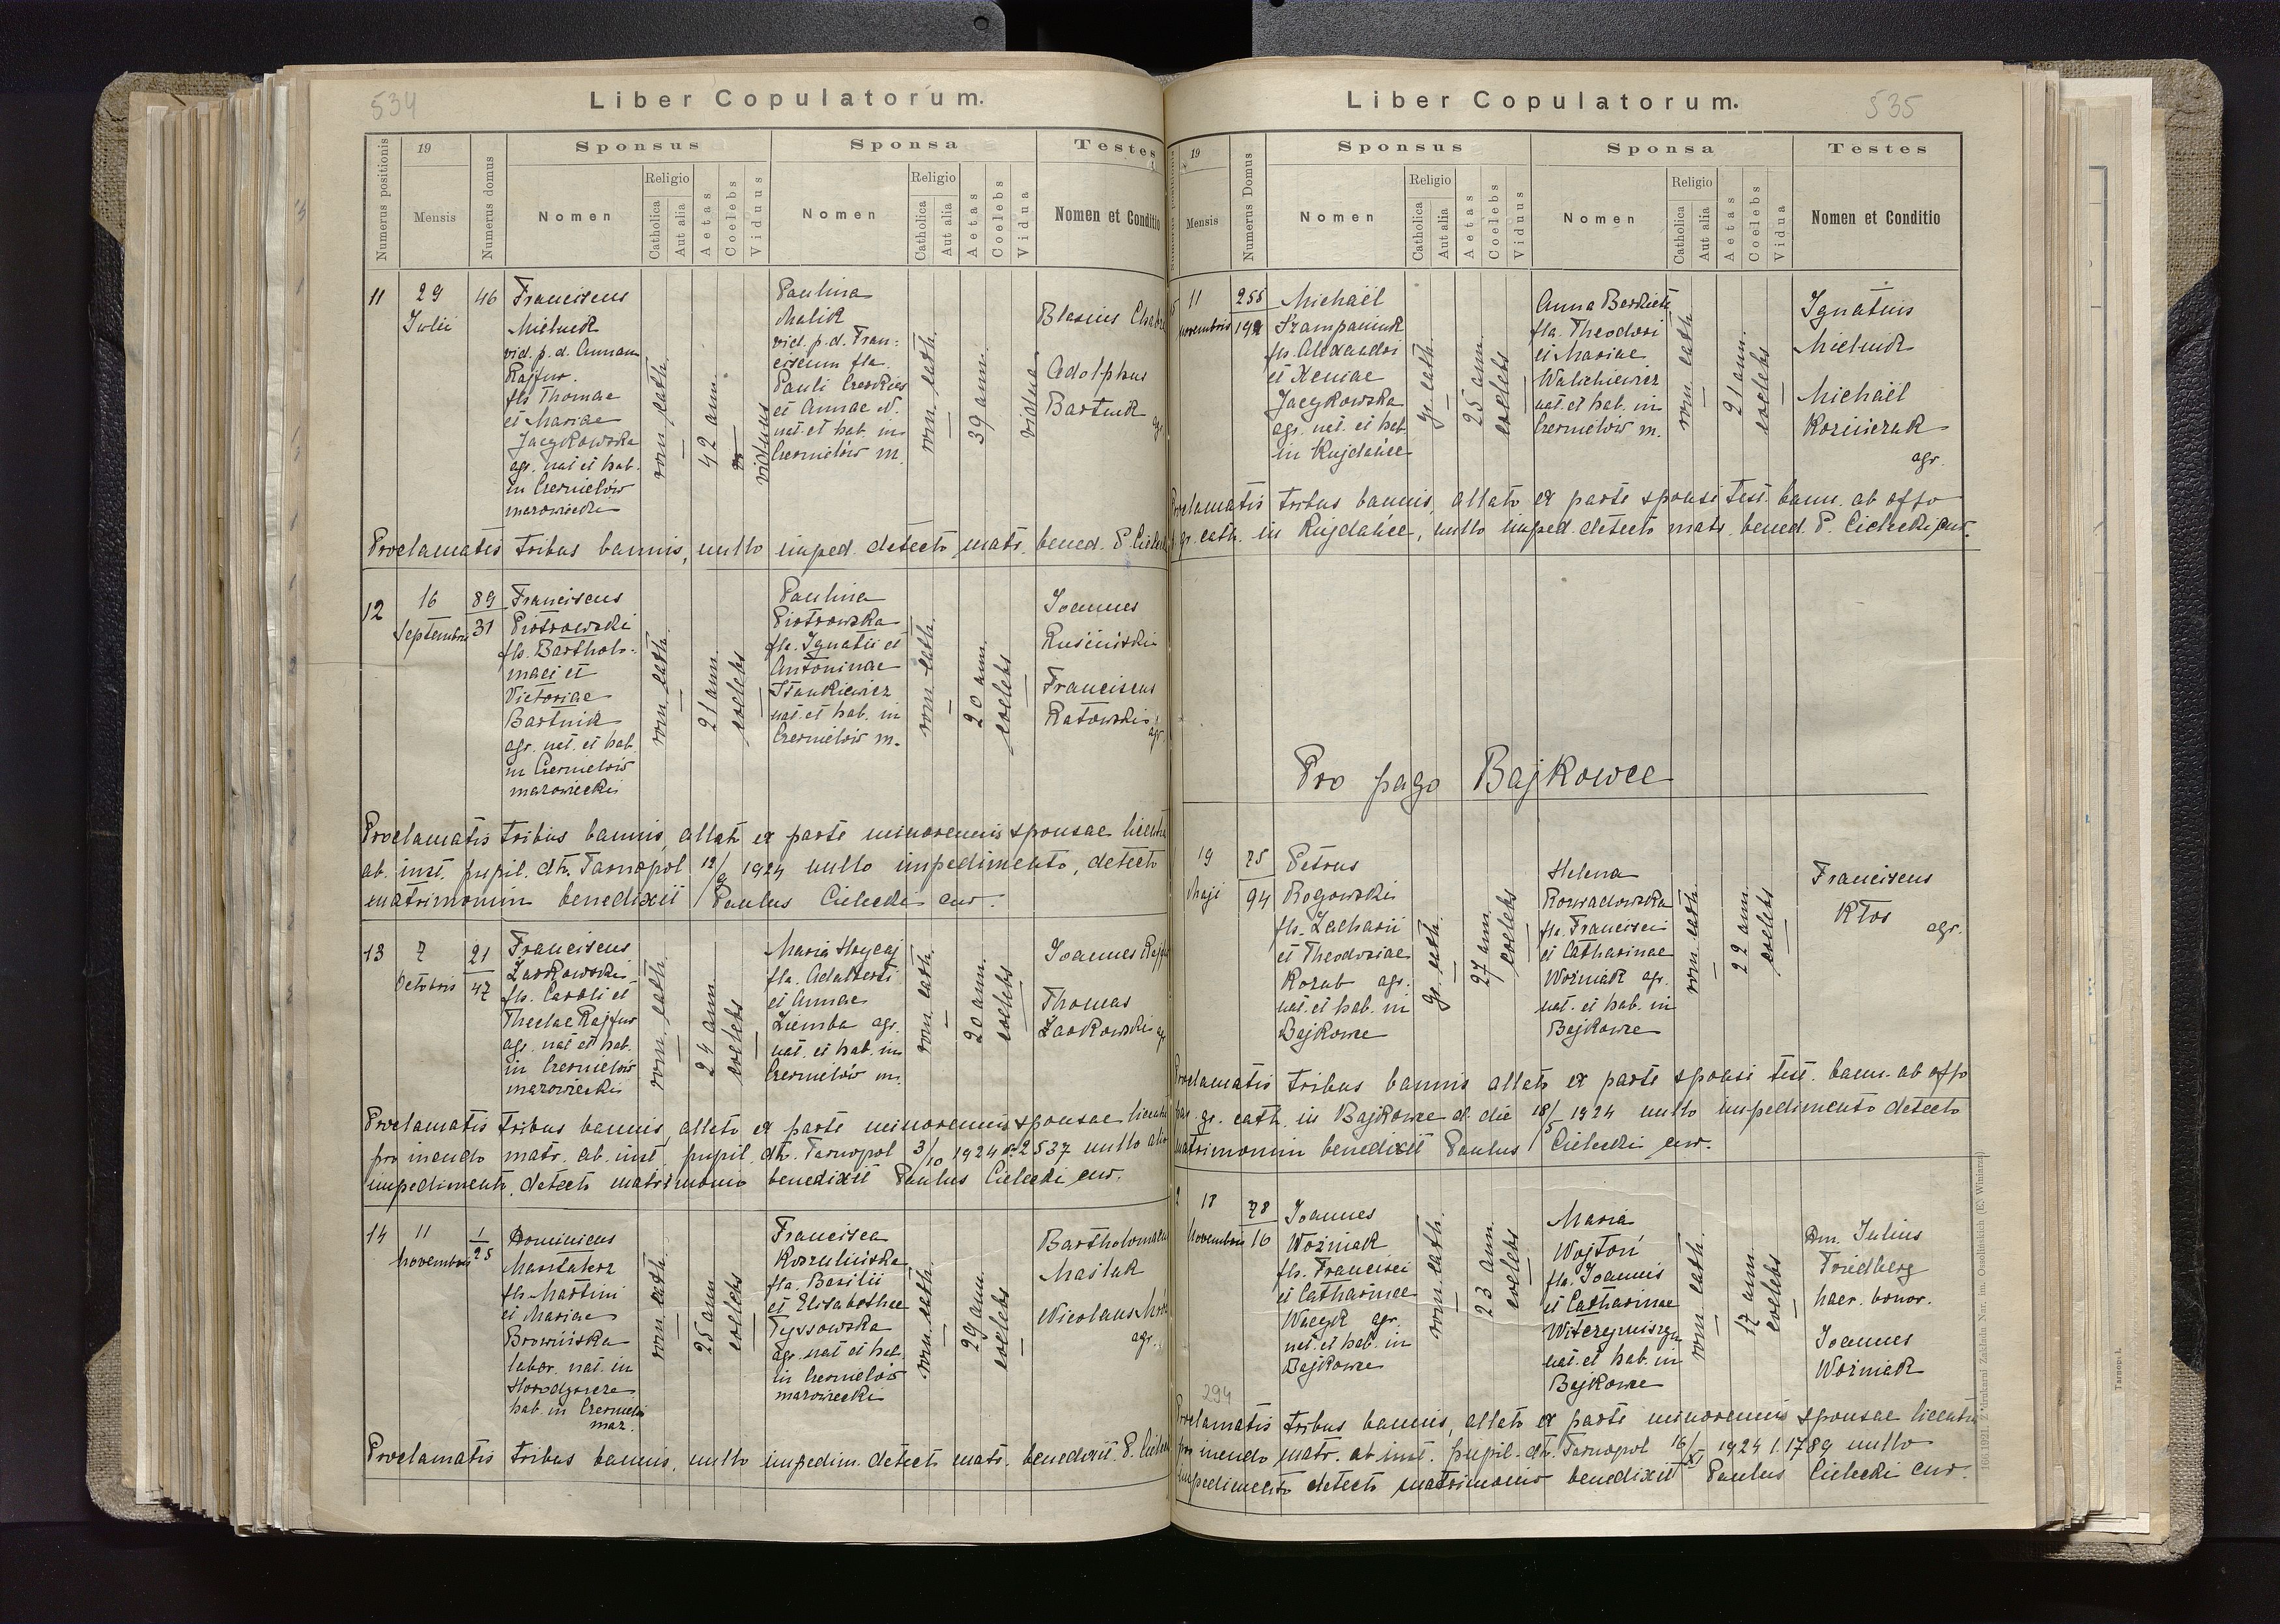 534
Liber Copulatorum.
Numerus positionis
19
Mensis
Numerus domus
Sponsus
Nomen
Religio
Catholica
Aut alia
Aetas
Coelebs
Viduus
Sponsa
Nomen
Religio
Catholica
Aut alia
Aetas
Coelebs
Vidua
Testes
Nomen et Conditio
11
29
Julii
46
Franciscus
Mielnik
vid. p. d. Annam
Rajfur.
fls Thomae
et Mariae
Jacykowska
agr. nat et hab.
in Czernielów
mazowiecki
rom. cath.
42 ann.
viduus
Paulina
Malik
vid. p. d. Fran=
ciscum fla.
Pauli
et Annae N.
nat. et hab. in
Czernielów m.
rom. cath.
39 ann.
vidua
Blasius
Adolphus
Bartnik
Proclamatis tribus bannis, nullo imped. detecto matr. bened. P.
12
16
Septembris
89
31
Franciscus
Piotrowski
fls. Bartholo-
maei et
Victoriae
Bartnik
agr. nat. et hab.
in Czernielów
mazowiecki
rom. cath.
21 ann.
coelebs
Paulina
Piotrowska
fla. Ignatii et
Antoninae
Stankiewicz
nat. et hab. in
Czernielów m.
rom. cath.
20 ann.
coelebs
Joannes
Rusiński
Franciscus
Ratowski
agr.
Proclamatis tribus bannis, allato ex parte minorennis sponsae
ab. inst. pupil. dtr. Tarnopol 12/9 1924 nullo impedimento, detecto
matrimonim benedixit Paulus Cielecki cur.
13
7
Octobris
21
47
Franciscus
Zarkowski
fls. Caroli et
Theclae Rajfur
agr. nat et hab.
in Czernielów
mazowiecki
rom. cath.
24 ann.
coelebs
Maria
fla. Adalberti
et Annae
Ziemba agr.
nat. et hab. in
Czernielów m.
rom. cath.
20 ann.
coelebs
Joannes
Thomas
Zarkowski
Proclamatis tribus bannis, allato ex parte minorennis sponsae
pro ineundo matr. ab. inst. pupil. dtr. Tarnopol 3/10 1924 2537 nullo
impedimento, detecto matrimonio benedixit Paulus Cielecki cur.
14
11
Novembris
1
25
Dominicus
fls Martini
et Mariae
Browińska
labor. nat. in
hab. in Czernielów
maz.
rom. cath.
25 ann
coelebs
Francisca
fla. Basilii
et Elisabethae
Tyssowska
agr. nat et hab.
in Czernielów
mazowiecki
rom. cath.
29 ann.
coelebs
Bartholomaeus
Maślak
Nicolaus
agr.
Proclamatis tribus bannis, nullo impedim. detecto matr. benedixit. P.
535
Liber Copulatorum.
Numerus positionis
19
Mensis
Numerus Domus
Sponsus
Nomen
Religio
Catholica
Aut alia
Aetas
Coelebs
Viduus
Sponsa
Nomen
Religio
Catholica
Aut alia
Aetas
Coelebs
Vidua
Testes
Nomen et Conditio
11
Novembris
255
Michaël
fls. Alexandri
et Xeniae
Jacykowska
agr. nat. et hab.
in Kujdańce
gr. cath.
25 ann
coelebs
Anna
fla. Theodori
et Mariae
nat. et hab. in
Czernielów m.
rom cath
21 ann.
coelebs
Ignatius
Mielnik
Michaël
agr.
Proclamatis tribus bannis, allato ex parte sponsi test. bann. ab offo
gr. cath. in Kujdańce, nullo imped. detecto matr. bened. P. Cielecki cur.
Pro pago Bajkowce
19
Maji
25
94
Petrus
Rogowski
fls. Zacharii
et Theodoriae
Kozub agr.
nat. et hab. in
Bajkowce
gr. cath.
27 ann
coelebs
Helena
Konradowska
fla. Francisci
et Catharinae
Woźniak agr.
nat. et hab. in
Bajkowce
rom. cath.
22 ann.
coelebs
Franciscus
Kłos
agr.
Proclamatis tribus bannis allato ex parte sponsi test. bann. ab offo
par. gr. cath. in Bajkowce d. die 18/5 1924 nullo impedimento detecto
matrimonim benedixit Paulus Cielecki cur.
2
18
Novembris
78
16
Joannes
Woźniak
fls. Francisci
et Catharinae
Wacyk agr.
nat. et hab. in
Bajkowce
rom. cath.
23 ann.
coelebs
Maria
Wojtoń
fla. Joannis
et Catharinae
nat. et hab. in
Bajkowce
rom cath.
17 ann.
coelebs
Dm. Julius
Friedberg
haer. bonor.
Joannes
Woźniak
294
Proclamatis tribus bannis, allato ex parte minorennis sponsae licentia
pro ineundo matr. ab inst. pupil. dtr. Tarnopol 16/XI 1924 l. 1789 nullo
impedimento detecto matrimonio benedixit Paulus Cielecki cur.
Nar. im. Ossolińskich (E. Winiarz)